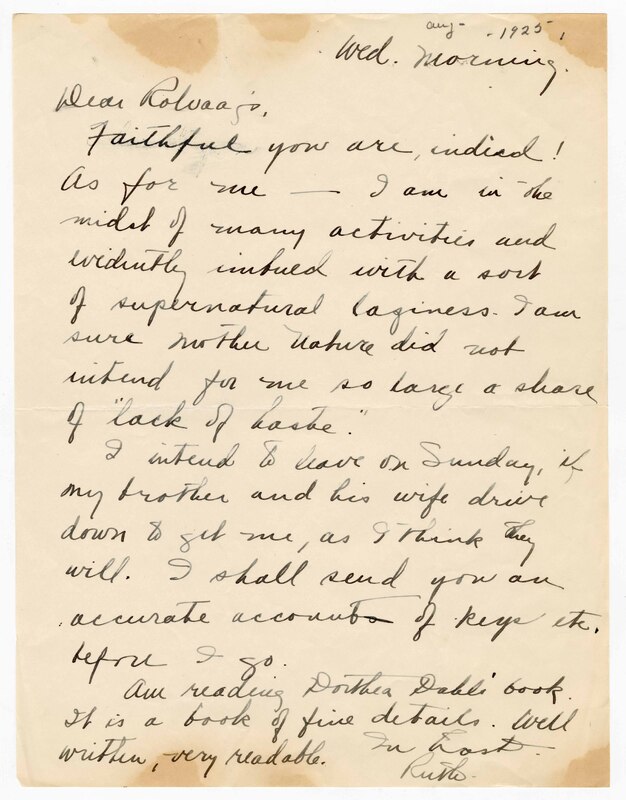 Aug - 1925.
Wed. Morning.
Dear Rolvaag's,
Faithful you are, indeed!
As for me — I am in the
midst of many activities and
evidently imbued with a sort
of supernatural laziness. I am
sure Mother Nature did not
intend for me so large a share
of "lack of haste."
I intend to leave on Sunday, if
my brother and his wife drive
down to get me, as I think they
will. I shall send you an
accurate account of keys etc.
before I go.
Am reading Dorthea Dahl's book.
It is a book of fine details. Well
written, very readable. In haste.
Ruth.